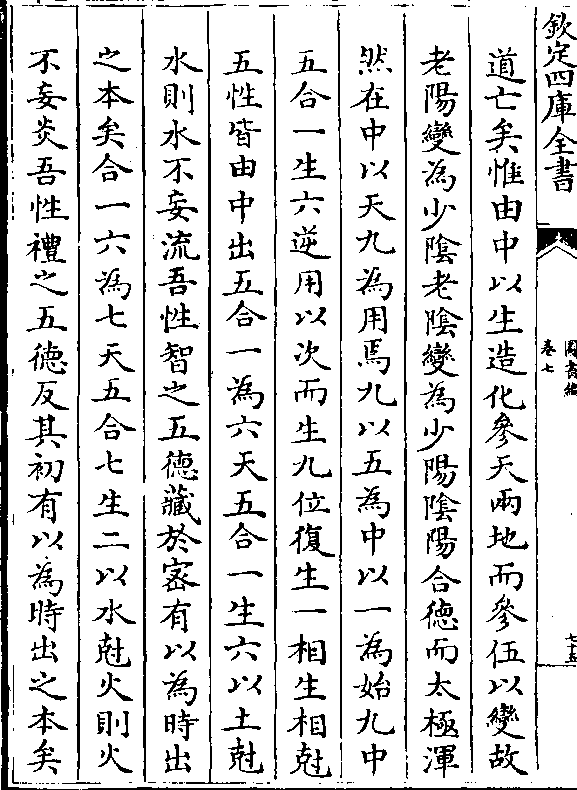 欽定四庫全書
圖書編
卷七
七十五
道亡矣惟由中以生造化參天兩地而參伍以變故
老陽變為少陰老陰變為少陽陰陽合德而太極渾
然在中以天九為用焉九以五為中以一為始九中
五合一生六逆用以次而生九位復生一相生相尅
五性皆由中出五合一為六天五合一生六以土尅
水則水不妄流吾性智之五德藏於密有以為時出
之本矣合一六為七天五合七生二以水尅火則火
不妄炎吾性禮之五德反其初有以為時出之本矣